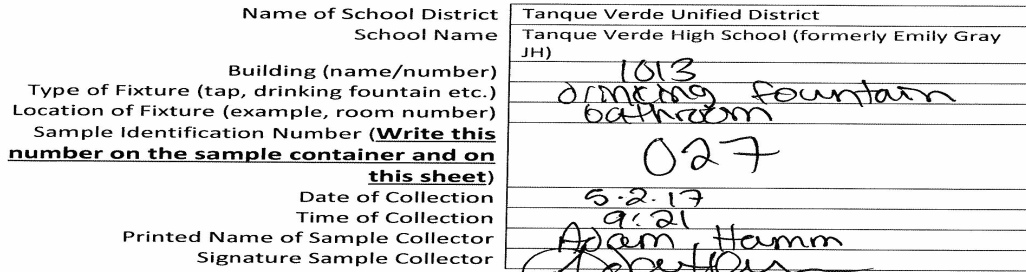 Name of School District Tanque Verde Unified District
School Name Tanque Verde High School (formerly Emily Gray
JH)
Building (name/number) 1013
Type of Fixture (tap, drinking fountain etc.) drinking fountain
Location of Fixture (example, room number) bathroom
Sample Identification Number (Write this
number on the sample container and on
this sheet) 027
Date of Collection 5.2.17
Time of Collection 9:21
Printed Name of Sample Collector Adam Hamm
Signature Sample Collector